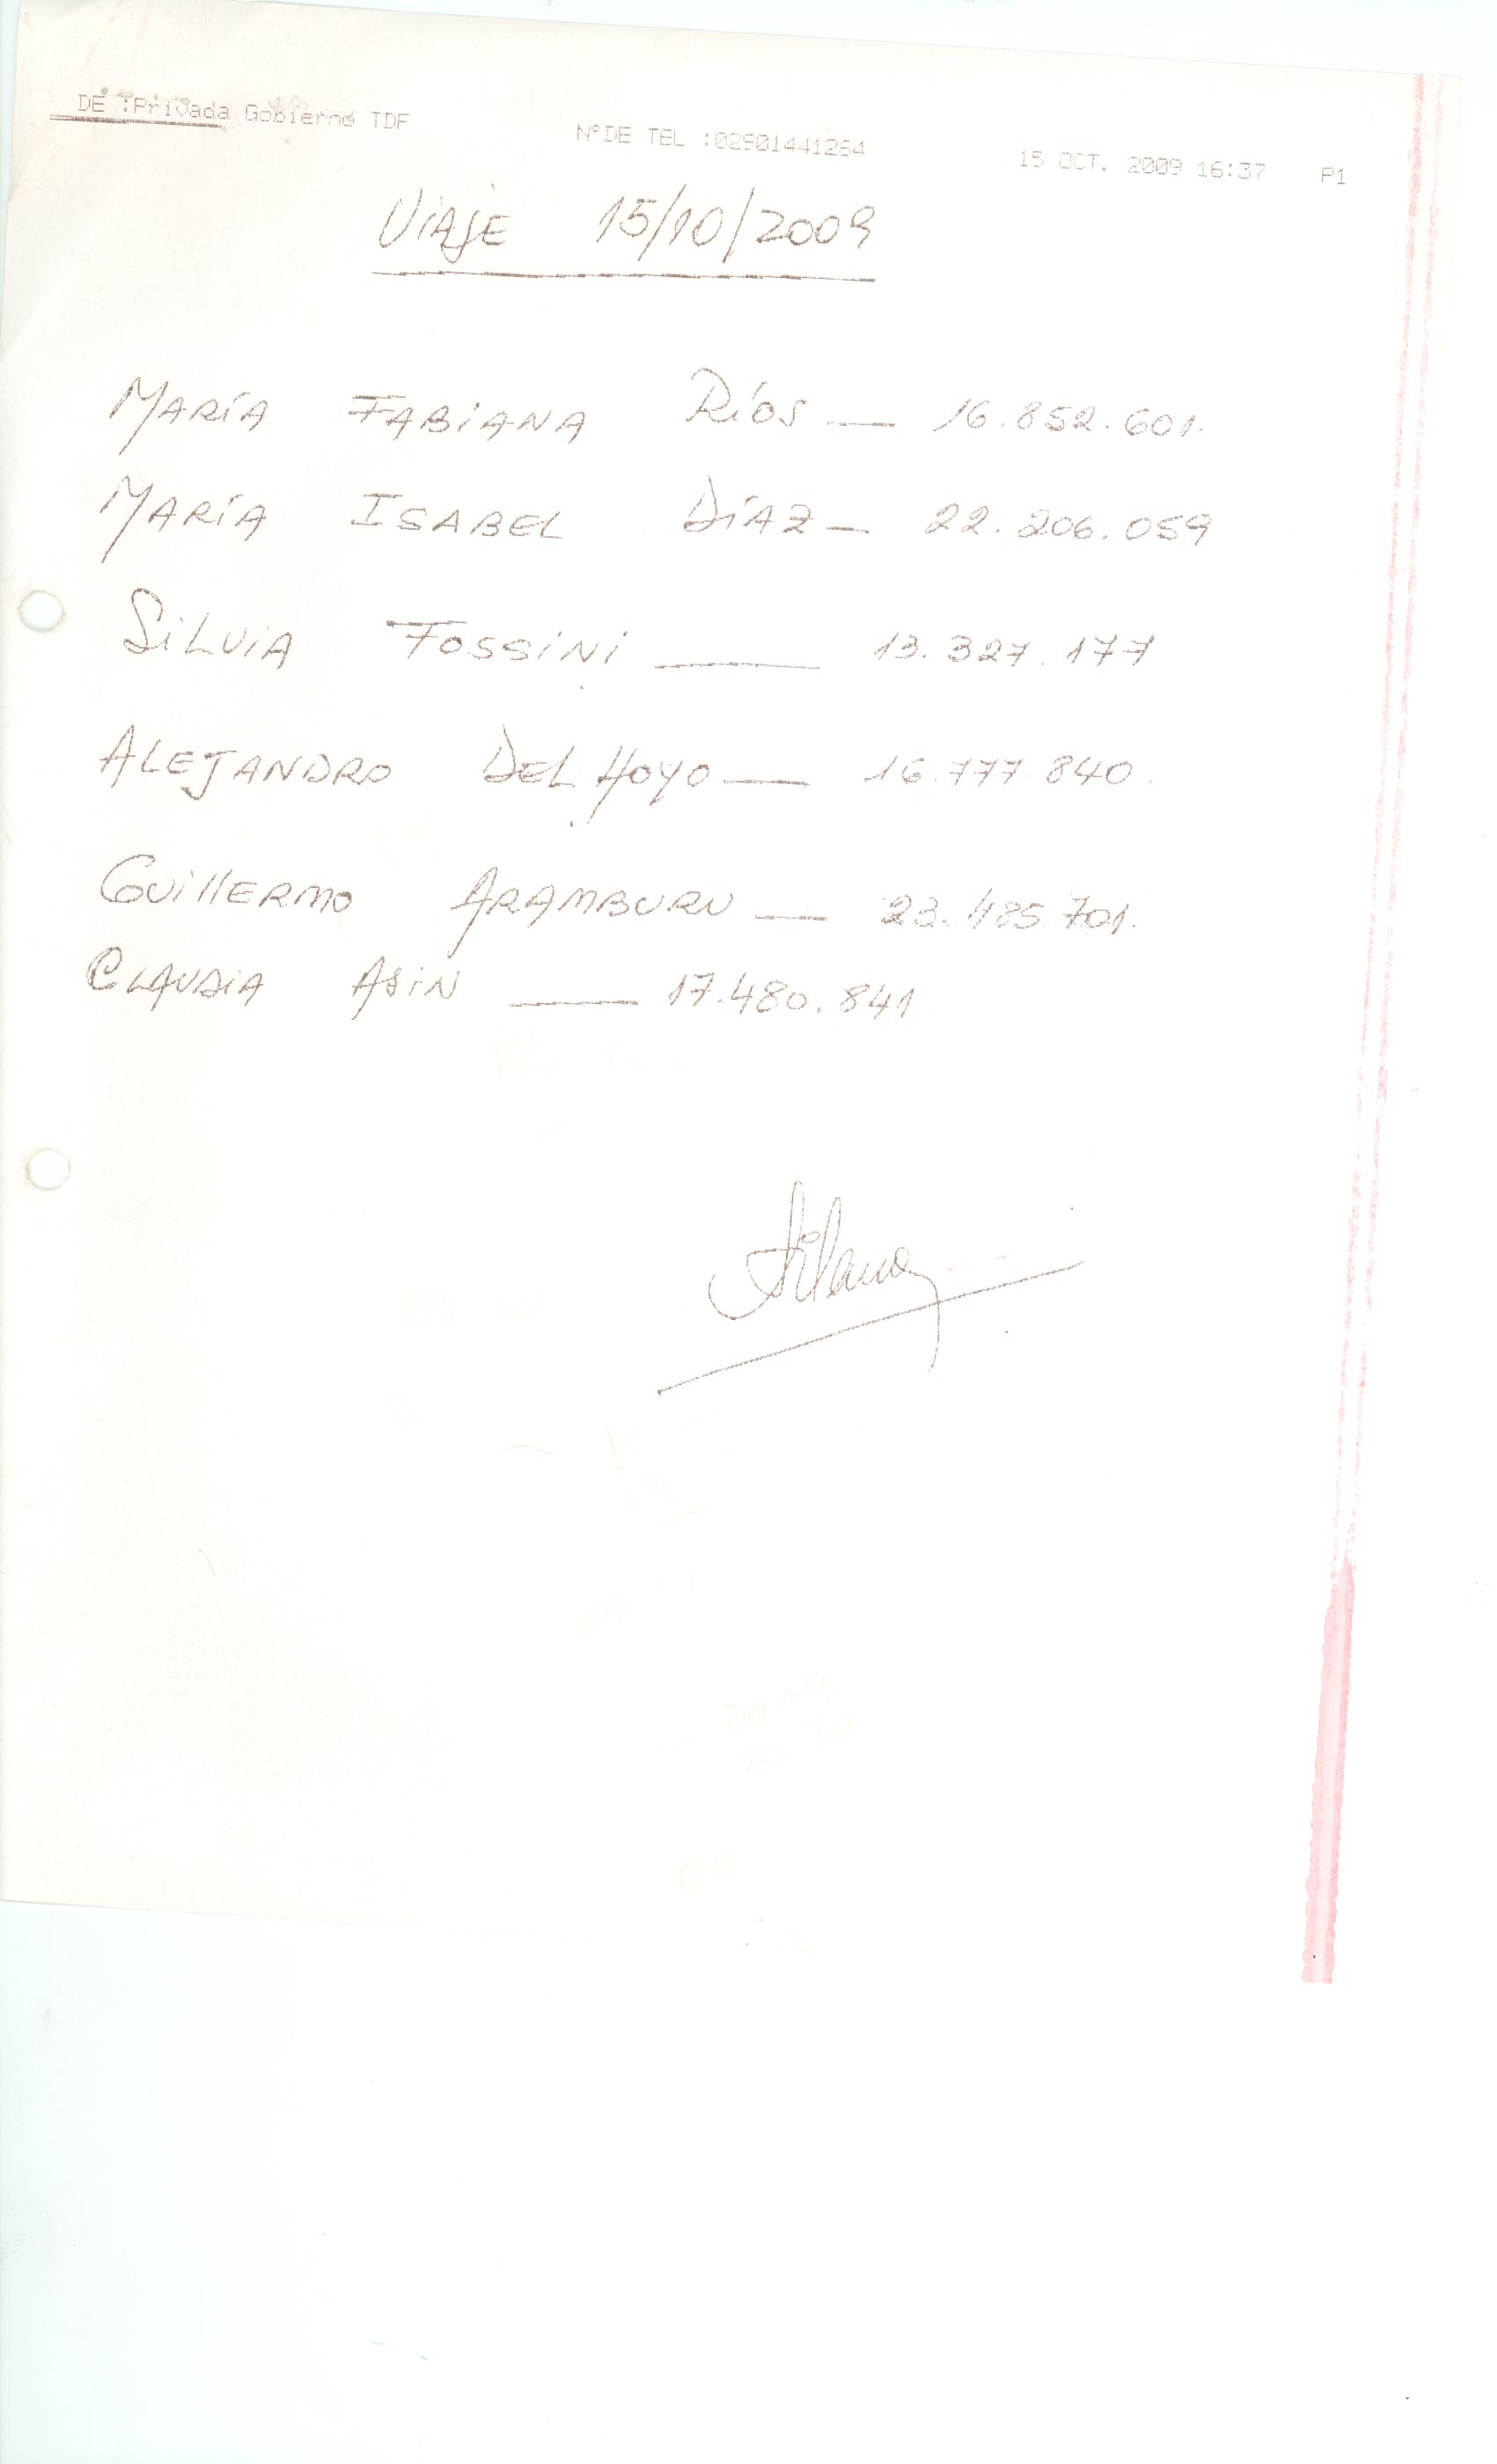 DE :Privada Gobierno TDF N°DE TEL :02901441254 15 OCT. 2009 16:37 P1
VIAJE 15/10/2009
MARÍA FABIANA RÍOS — 16.852.601.
MARÍA ISABEL DÍAZ — 22.206.059
SILVIA FOSSINI — 13.327.177
ALEJANDRO DEL HOYO — 16.777.840.
GUILLERMO ARAMBURU — 23.485.701.
CLAUDIA ASIN — 17.480.841